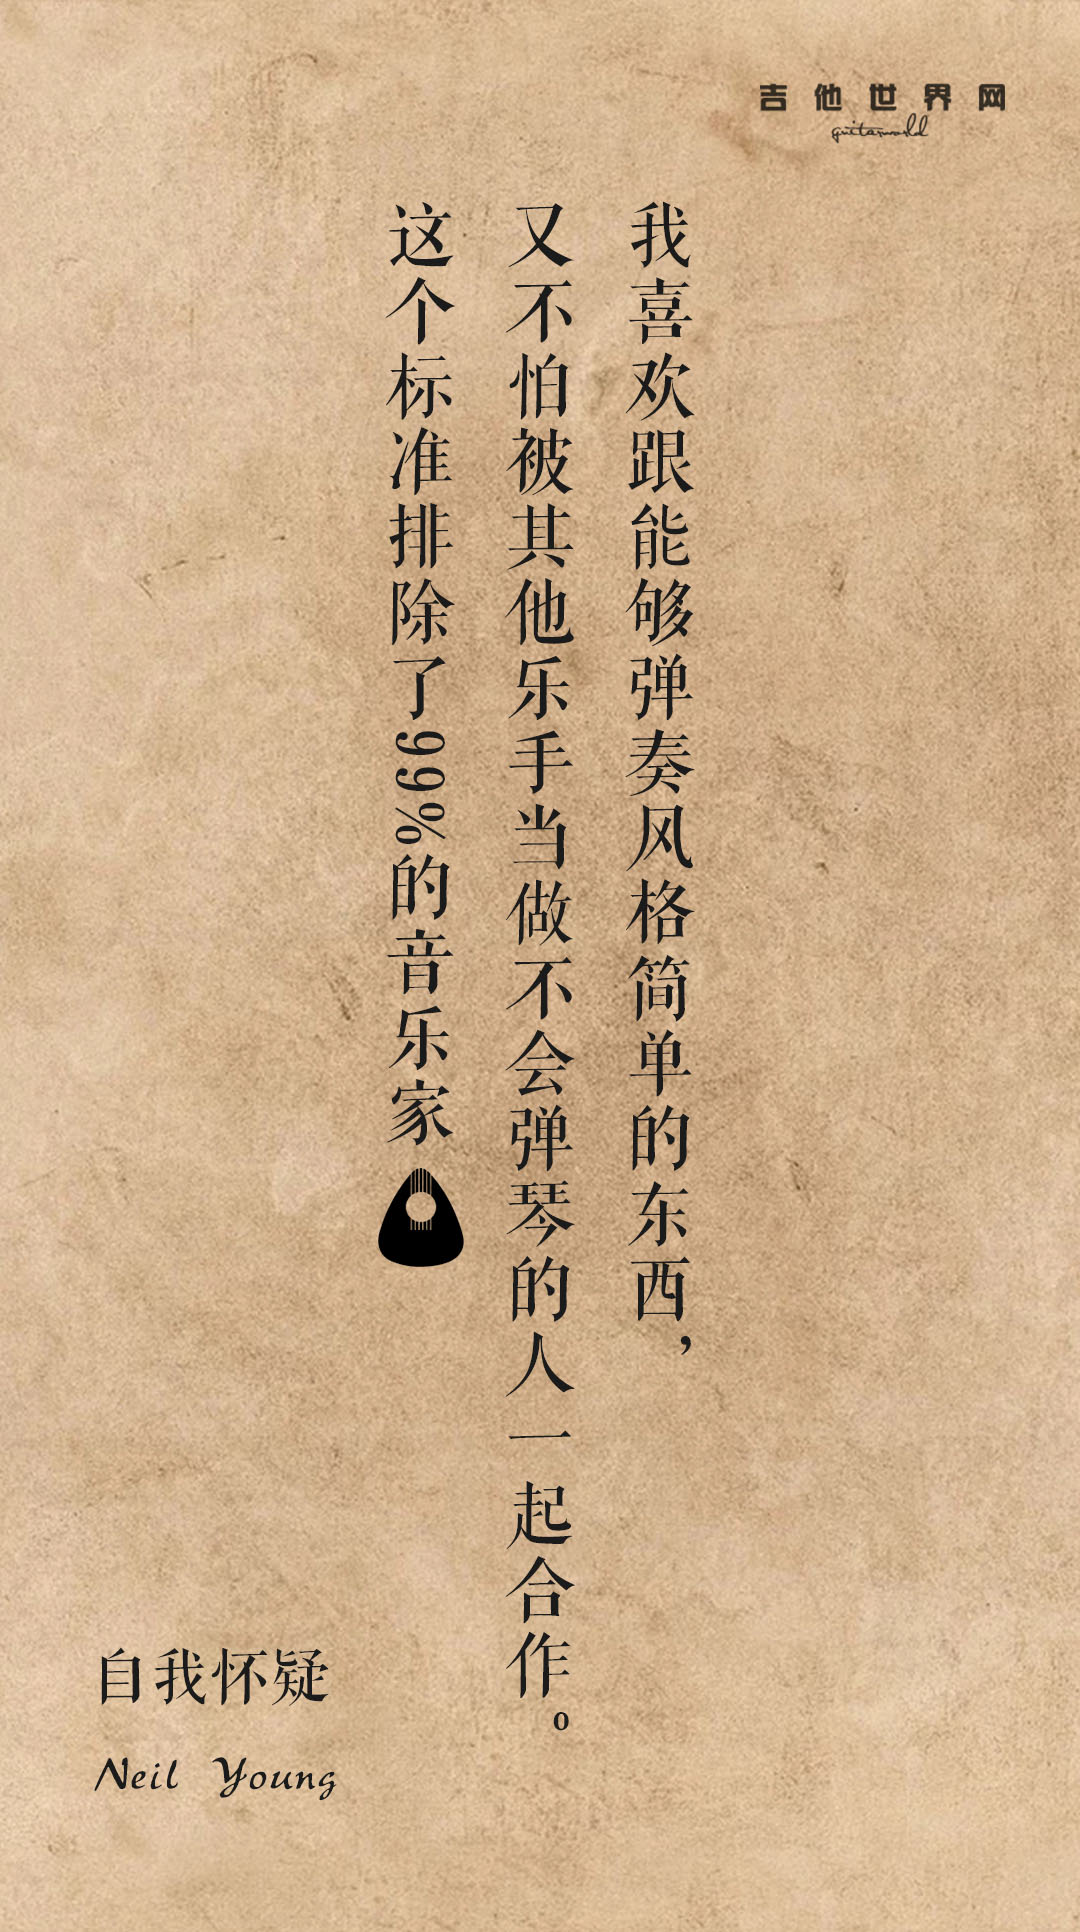 吉他世界网
guitarworld
我喜欢跟能够弹奏风格简单的东西，
又不怕被其他乐手当做不会弹琴的人一起合作。
这个标准排除了99%的音乐家
自我怀疑
Neil Young